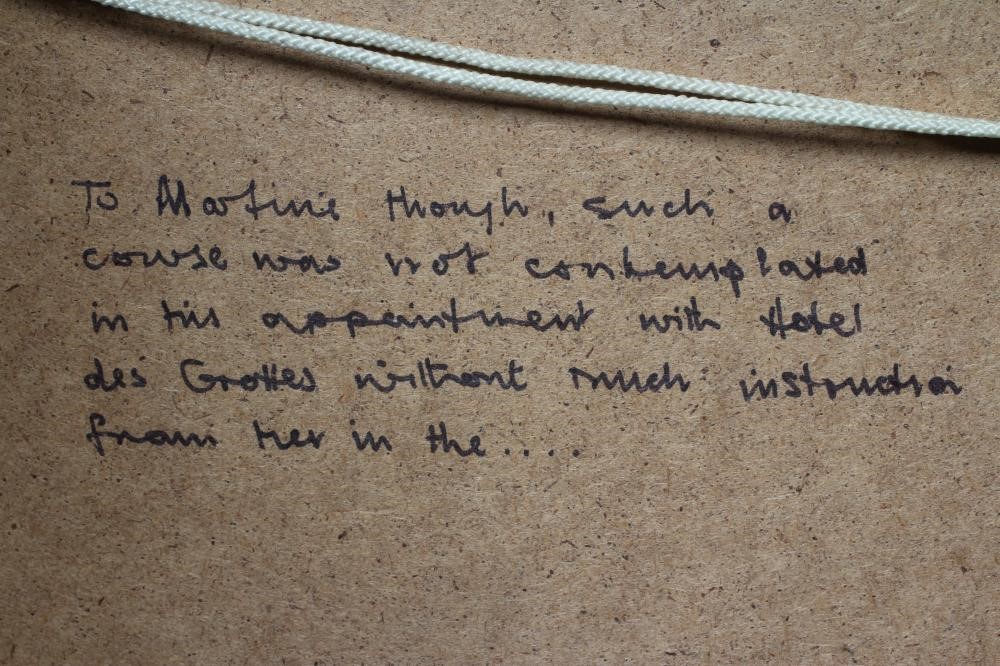 To Martine though, such a
course was not contemplated
in his appointment with Hotel
des Grottes without much instruction
from her in the....